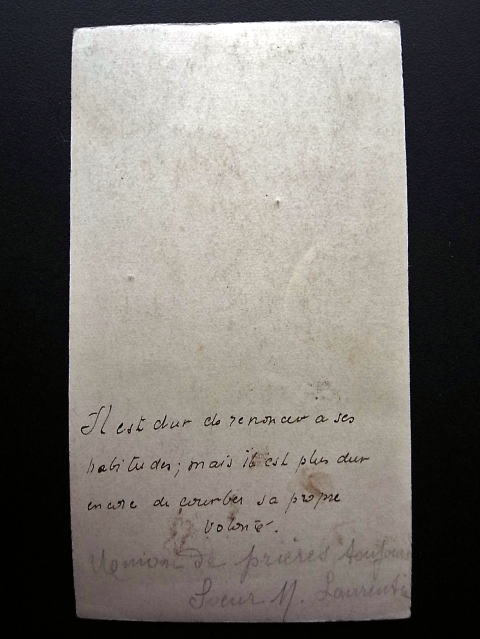 Il est dur de renoncer a ses
habitudes; mais il est plus dur
encore de courber sa propre
volonté.
Union de prières toujours
Soeur M. Laurentia